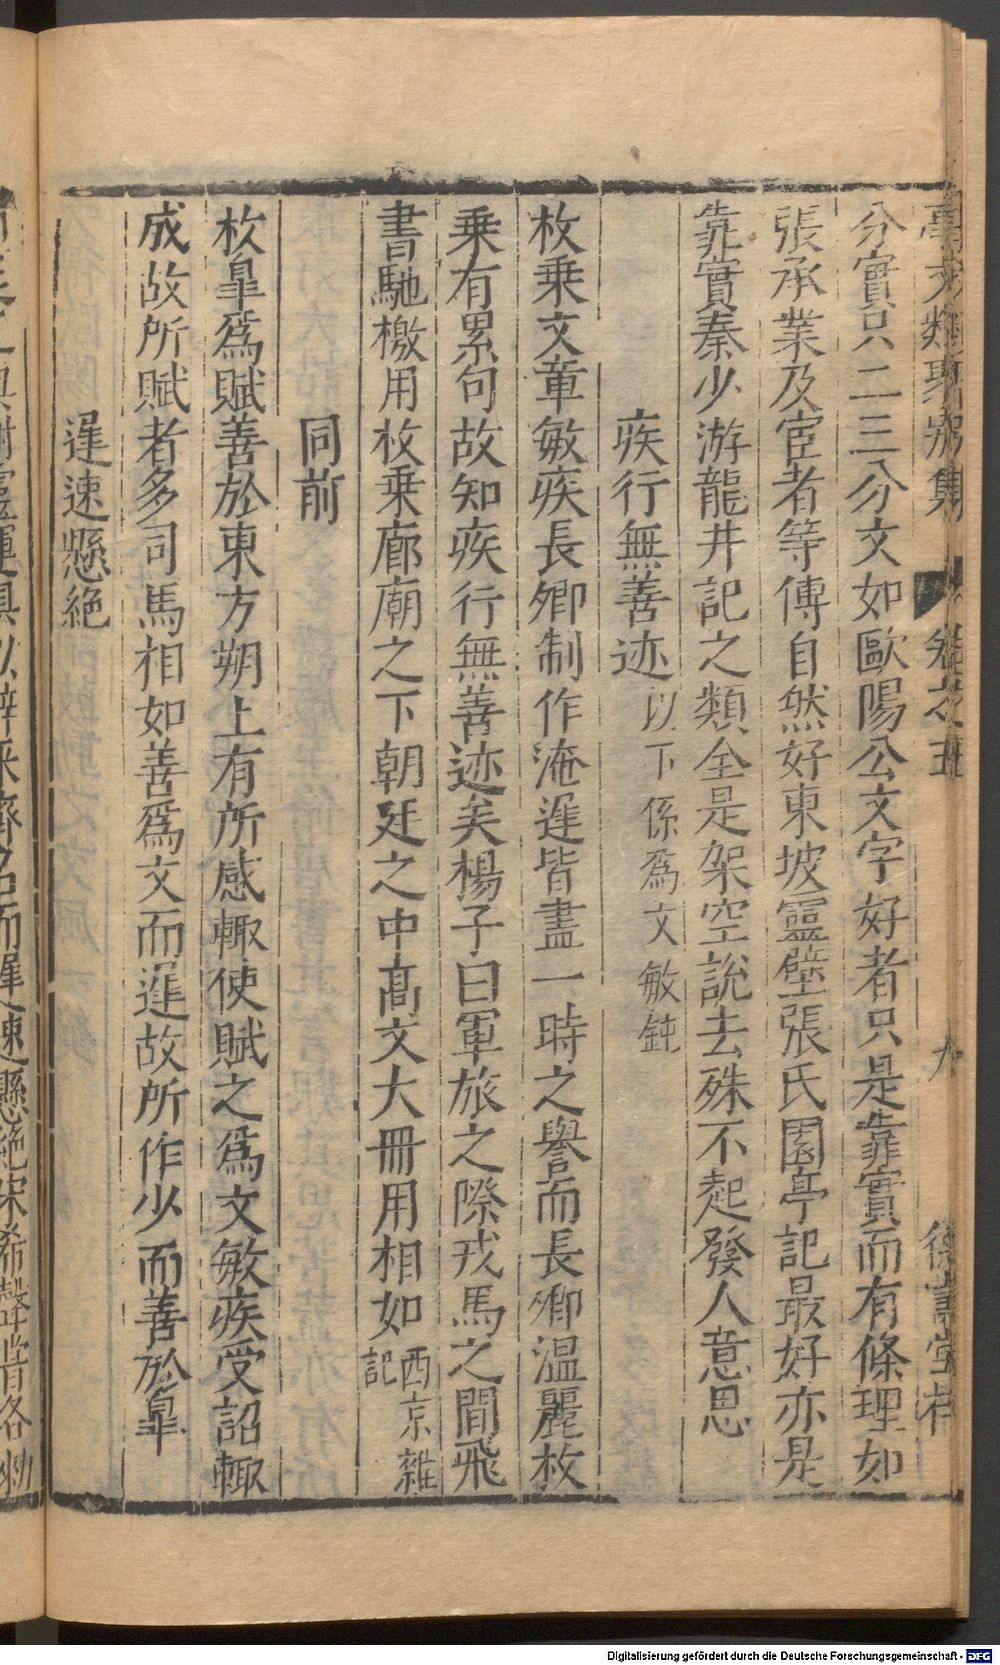 事文類聚別集 卷之五 九 德壽堂梓
分實只二三分文如歐陽公文字好者只是靠實而有條理如
張承業及宦者等傳自然好東坡靈壁張氏園亭記最好亦是
靠實秦少游龍井記之類全是架空說去殊不起發人意思
疾行無善迹以下係爲文敏鈍
枚乗文章敏疾長卿制作淹遲皆盡一時之譽而長卿溫麗枚
乗有累句故知疾行無善迹矣楊子曰軍旅之際戎馬之間飛
書馳檄用枚乗廊廟之下朝廷之中髙文大冊用相如西京雜記
同前
枚皐爲賦善於東方朔上有所感輙使賦之爲文敏疾受詔輙
成故所賦者多司馬相如善爲文而遲故所作少而善於皐
遲速懸絶
謝靈運
俱以辭采齊名而遲速懸絶宋
Digitalisierung gefördert durch die Deutsche Forschungsgemeinschaft - DFG